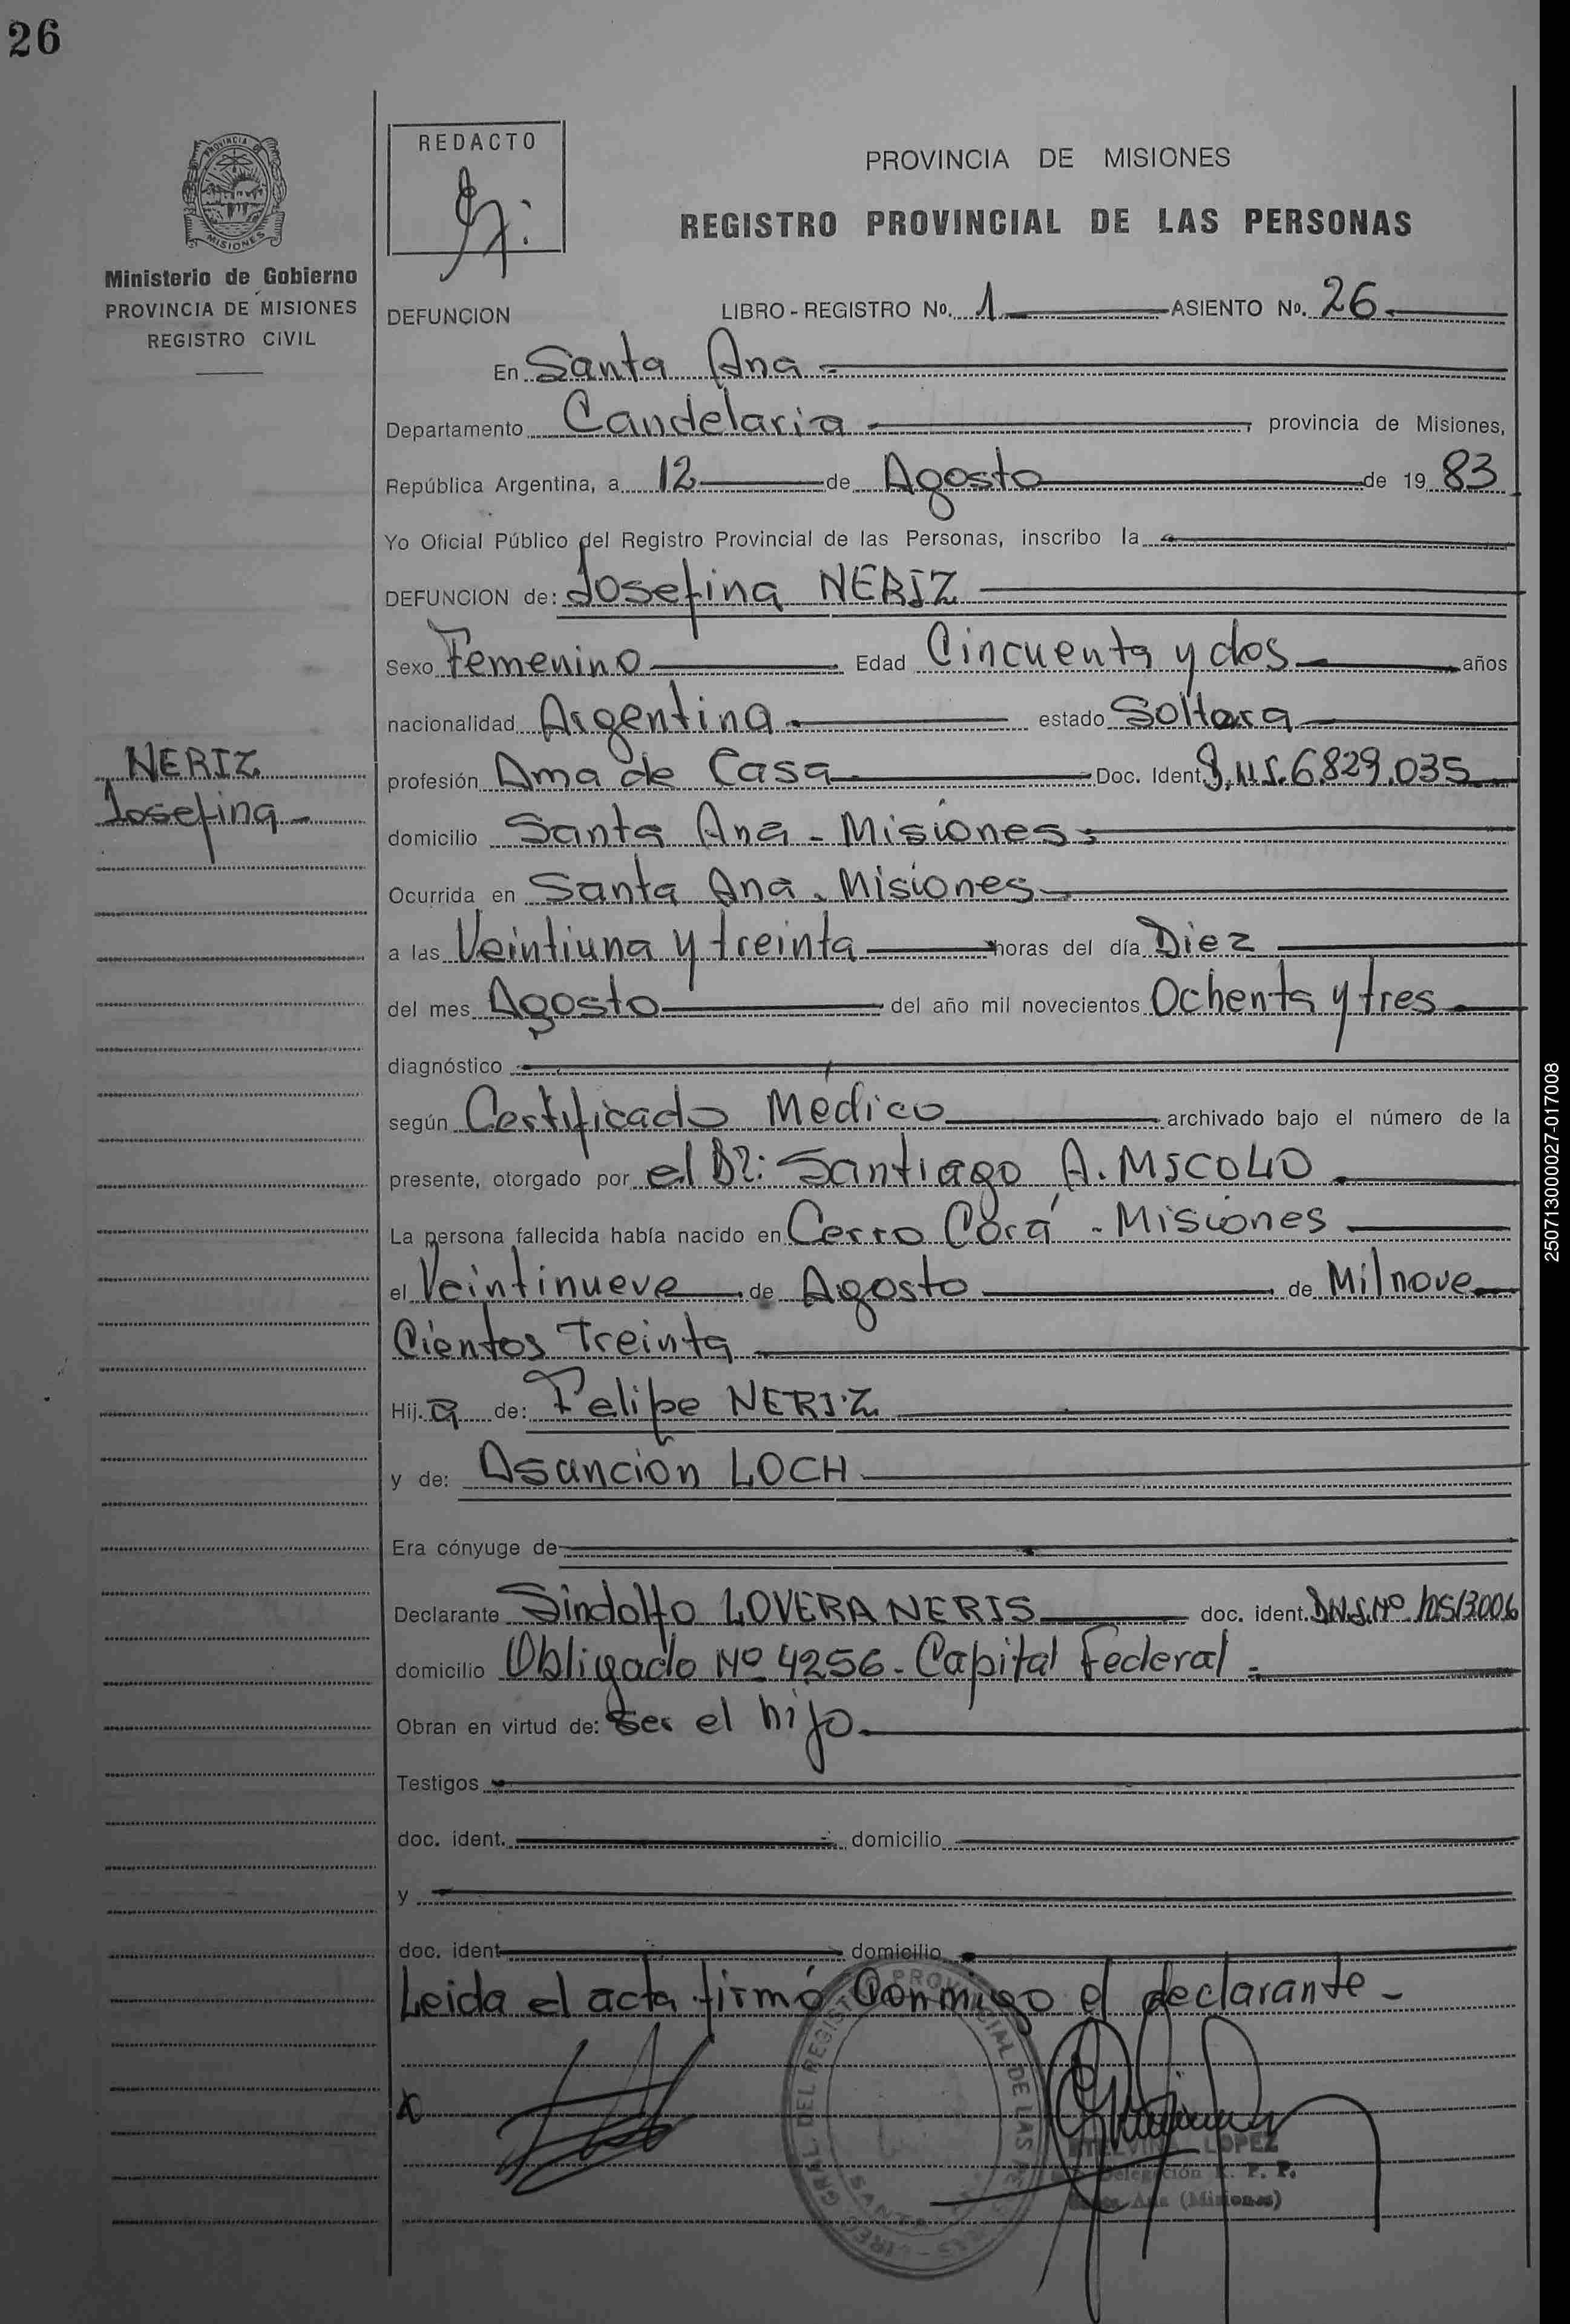 26
PROVINCIA DE
MISIONES
Ministerio de Gobierno
PROVINCIA DE MISIONES
REGISTRO CIVIL
NERIZ
Josefina -
REDACTO
PROVINCIA DE MISIONES
REGISTRO PROVINCIAL DE LAS PERSONAS
DEFUNCION LIBRO - REGISTRO No. 1 ASIENTO No. 26
En Santa Ana
Departamento Candelaria, provincia de Misiones,
República Argentina, a 12 de Agosto de 19 83
Yo Oficial Público del Registro Provincial de las Personas, inscribo la
DEFUNCION de: Josefina NERIZ
Sexo Femenino Edad Cincuenta y dos años
nacionalidad Argentina estado Soltera
profesión Ama de Casa Doc. Ident. 6.829.035
domicilio Santa Ana - Misiones
Ocurrida en Santa Ana - Misiones
a las Veintiuna y treinta horas del día Diez
del mes Agosto del año mil novecientos Ochenta y tres
diagnóstico
según Certificado Medico archivado bajo el número de la
presente, otorgado por el Dr: Santiago A.
La persona fallecida había nacido en Cerro Corá - Misiones
el Veintinueve de Agosto de Mil nove
Cientos Treinta
Hij.a de: Felipe NERIZ
y de: Asuncion LOCH
Era cónyuge de
Declarante Sindolfo LOVERA NERIS doc. ident.
domicilio Obligado Nº 4256 - Capital Federal
Obran en virtud de: Ser el hijo
Testigos
doc. ident. domicilio
y
doc. ident domicilio
Leida el acta firmó Conmigo el declarante -
LOPEZ
Delegación R. P. P.
Ana (Misiones)
250713000027-017008